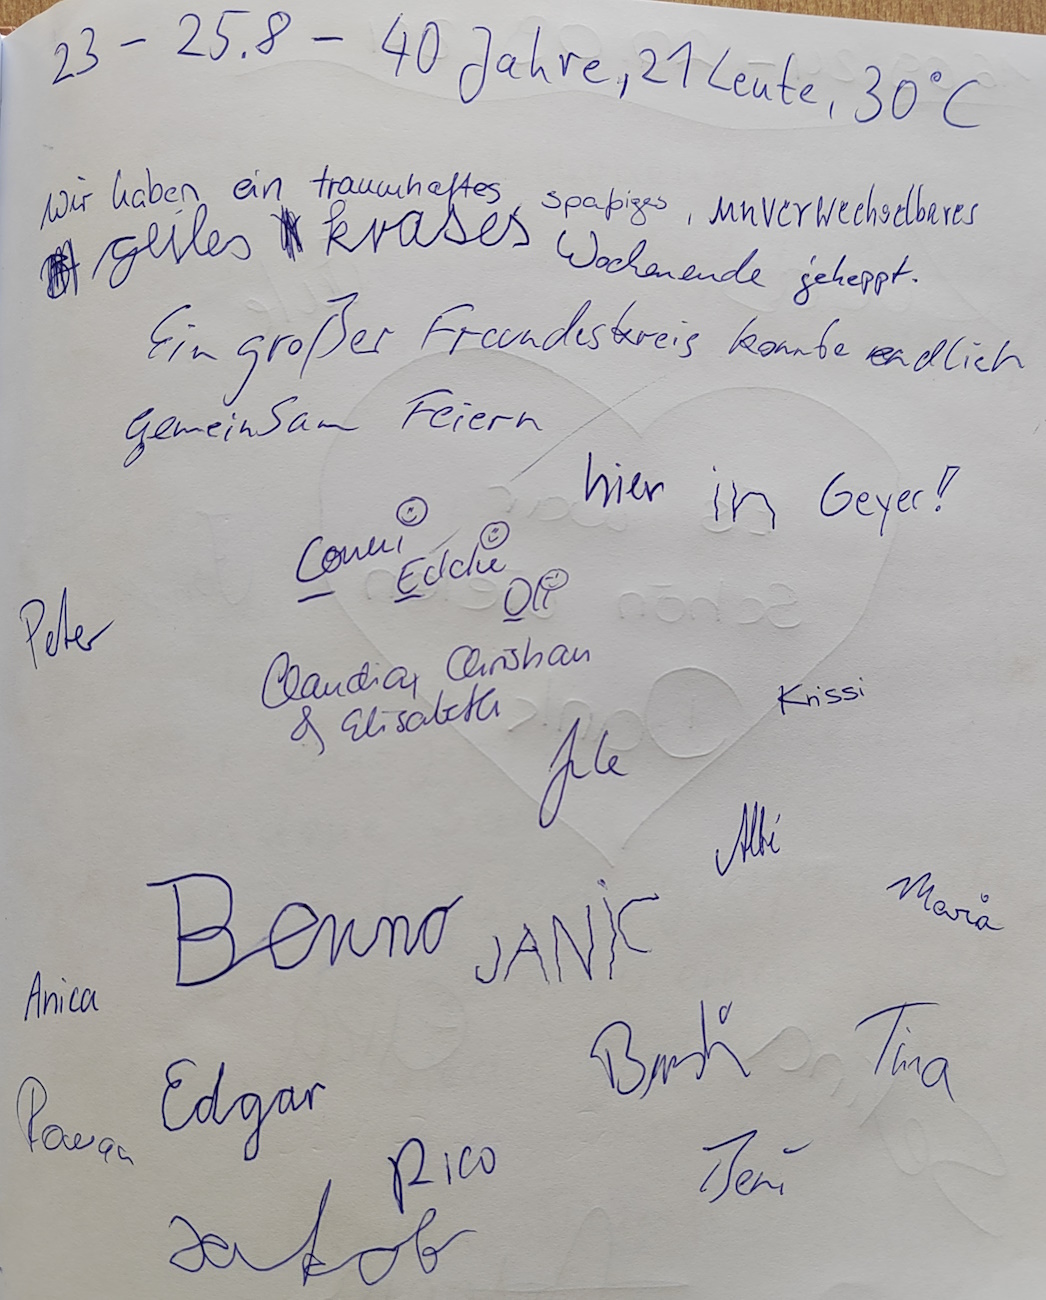 23 - 25.8 - 40 Jahre, 21 Leute, 30°C
Wir haben ein traumhaftes, spaßiges, unverwechselbares
geiles krases Wochenende geheppt.
Ein großer Freundeskreis konnte endlich
gemeinsam Feiern
hier in Geyer!
Conni
Eddie
Oli
Peter
Claudia, Christian
& Elisabeth
Krissi
Jule
Albi
Maria
Benno
JANIC
Anica
Tina
Edgar
Rico
Jakob